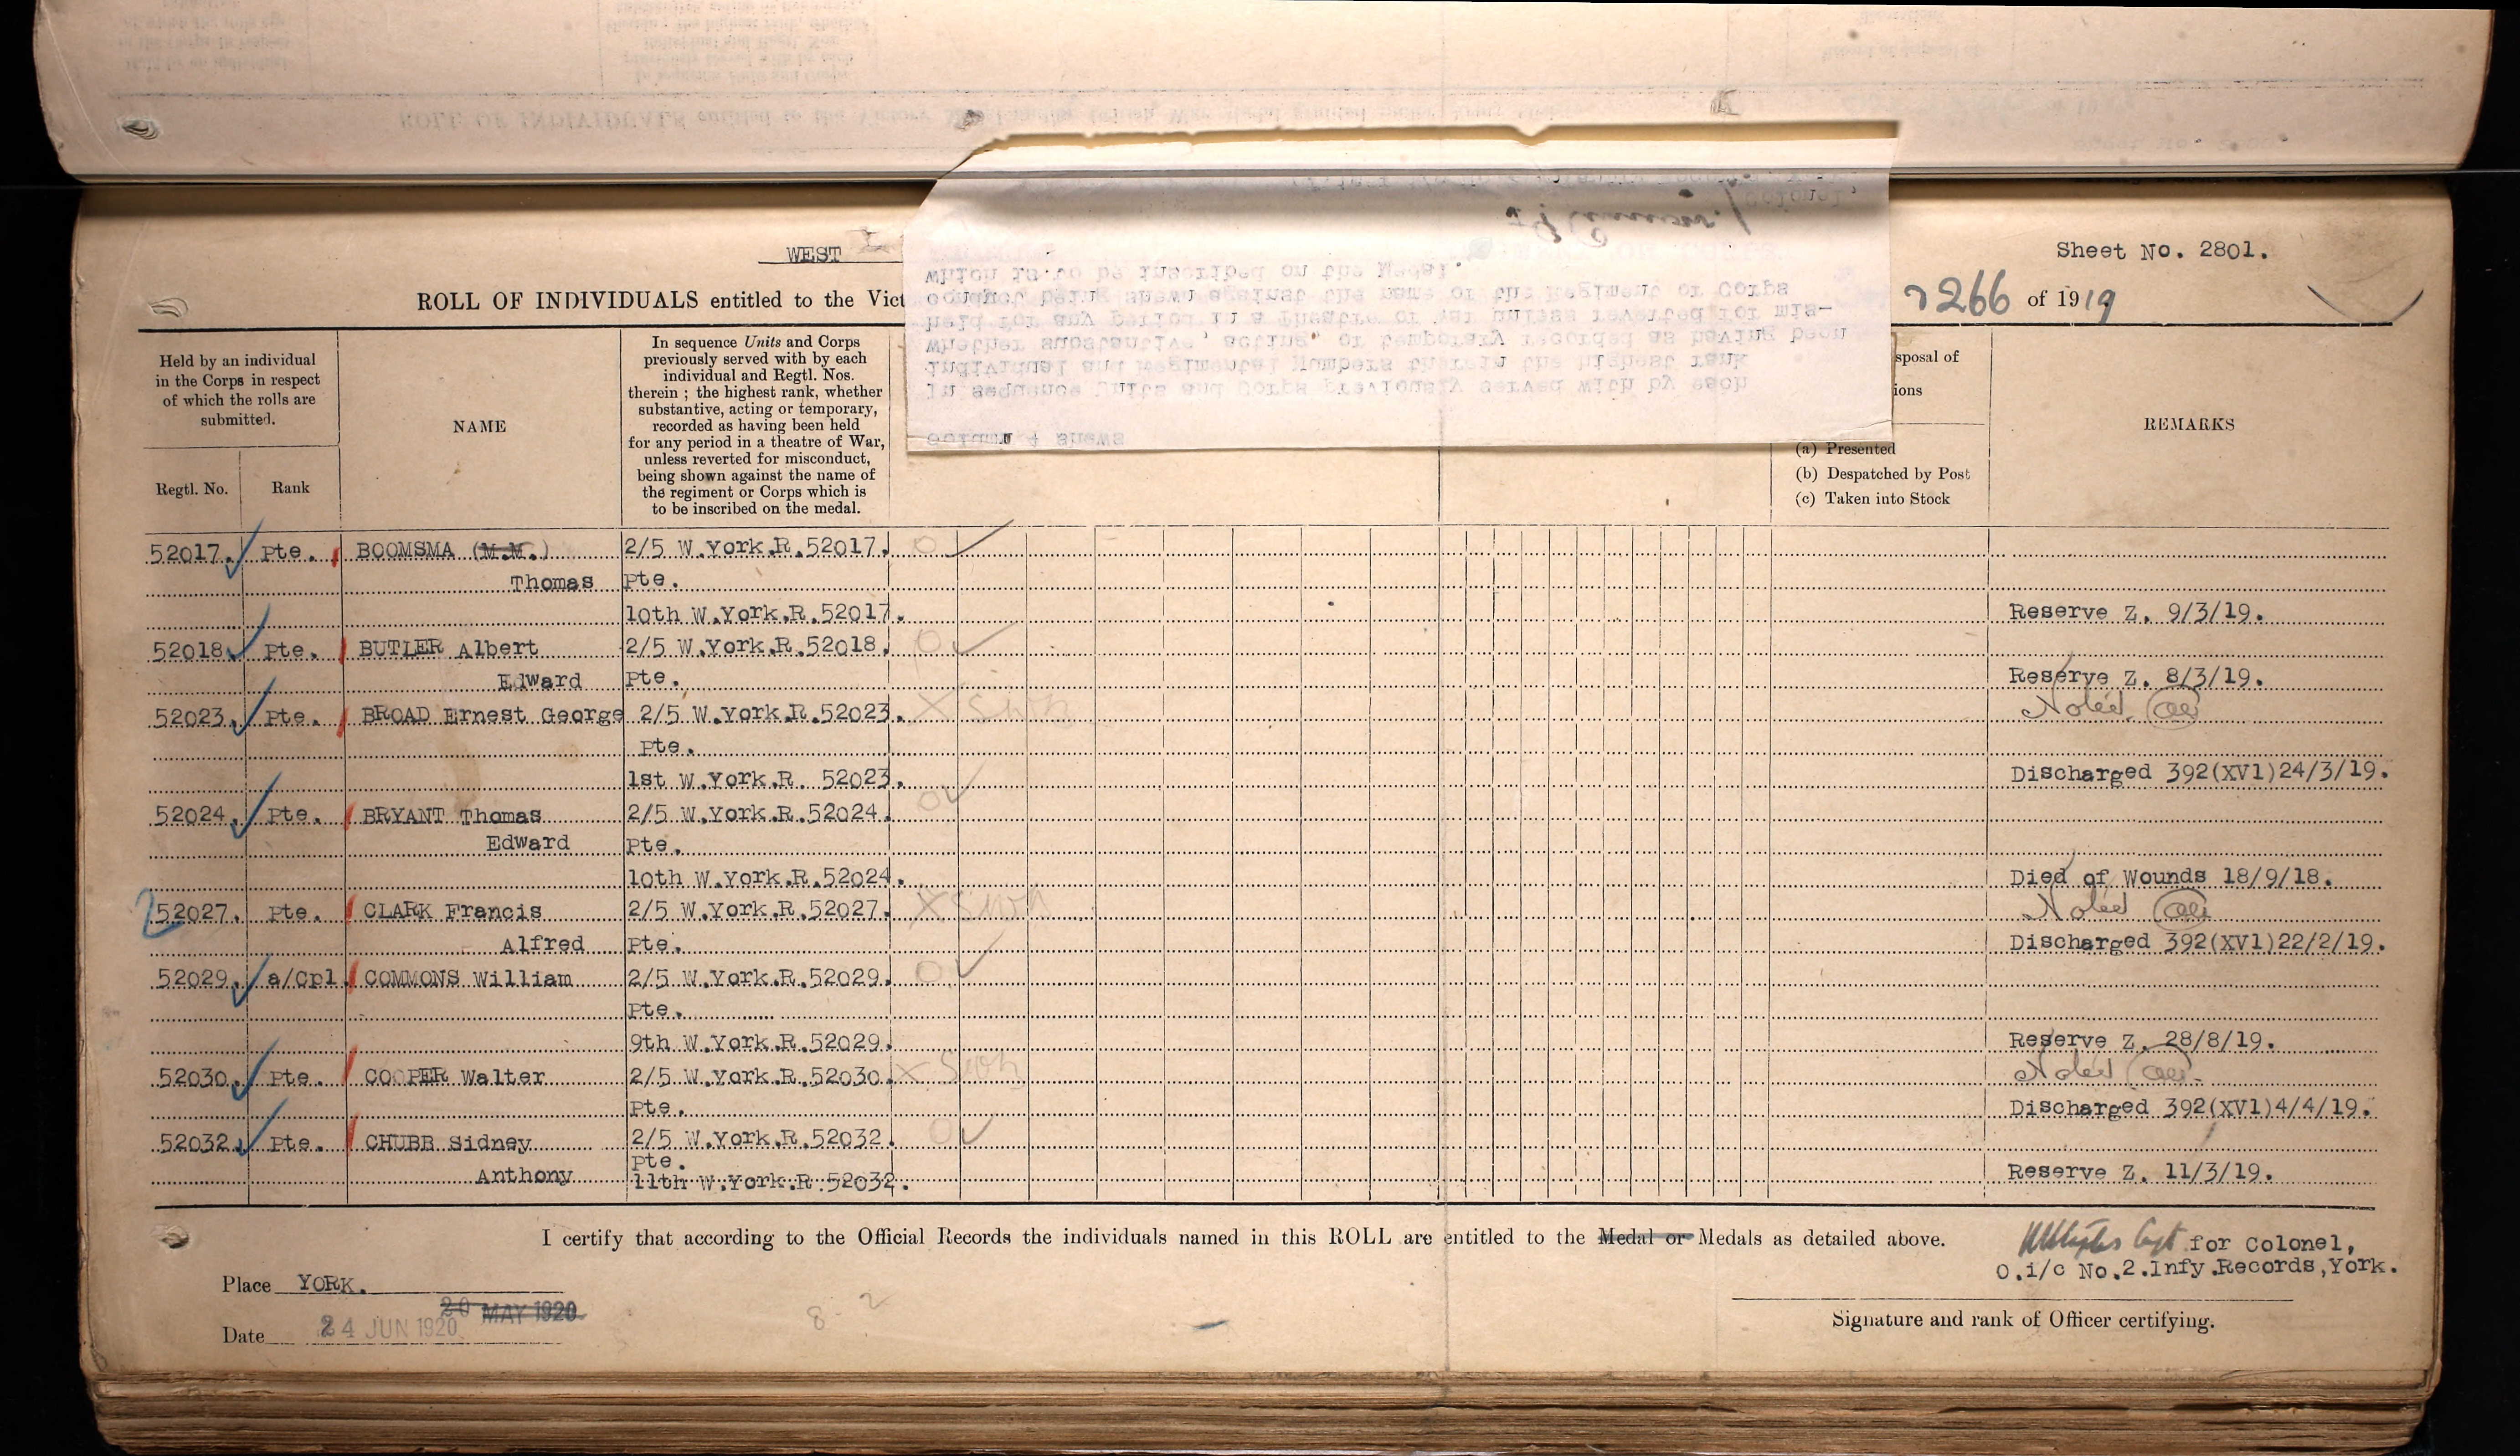 WEST
Sheet No. 2801.
ROLL OF INDIVIDUALS entitled to the Vict
2266 of 1919
Held by an individual
in the Corps in respect
of which the rolls are
submitted.
Regtl. No.
Rank
NAME
In sequence Units and Corps
previously served with by each
individual and Regtl. Nos.
therein ; the highest rank, whether
substantive, acting or temporary,
recorded as having been held
for any period in a theatre of War,
unless reverted for misconduct,
being shown against the name of
the regiment or Corps which is
to be inscribed on the medal.
Column 4 shews
In sequence Units and Corps previously served with by each
individual and Regimental Numbers therein the highest rank
whether substantive, acting, or temporary recorded as having been
held for any period in a Theatre of War unless reverted for mis-
conduct being shewn against the name of the Regiment or Corps
which is to be inscribed on the Medal.
Colonel,
sposal of
ions
(a) Presented
(b) Despatched by Post
(c) Taken into Stock
REMARKS
52017. Pte. BOOMSMA (M.M.) 2/5 W.York.R.52017.
Thomas Pte.
10th W.York.R.52017. Reserve Z. 9/3/19.
52018. Pte. BUTLER Albert 2/5 W.York.R.52018.
Edward Pte. Reserve Z. 8/3/19.
52023. Pte. BROAD Ernest George 2/5 W.York.R.52023. X Noted
Pte.
1st W.York.R. 52023. Discharged 392(XV1)24/3/19.
52024. Pte. BRYANT Thomas 2/5 W.York.R.52024.
Edward Pte.
10th W.York.R.52024. Died of Wounds 18/9/18.
52027. Pte. CLARK Francis 2/5 W.York.R.52027. X Noted
Alfred Pte. Discharged 392(XV1)22/2/19.
52029. a/Cpl. COMMONS William 2/5 W.York.R.52029.
Pte.
9th W.York.R.52029. Reserve Z. 28/8/19.
52030. Pte. COOPER Walter 2/5 W.York.R.52030. X Noted
Pte. Discharged 392(XV1)4/4/19.
52032. Pte. CHUBB Sidney 2/5 W.York.R.52032.
Pte.
Anthony 11th W.York.R.52032. Reserve Z. 11/3/19.
I certify that according to the Official Records the individuals named in this ROLL are entitled to the Medal or Medals as detailed above.
Capt for Colonel,
O.i/c No.2.Infy.Records,York.
Place YORK.
20 MAY 1920
Date 24 JUN 1920
8-2
Signature and rank of Officer certifying.